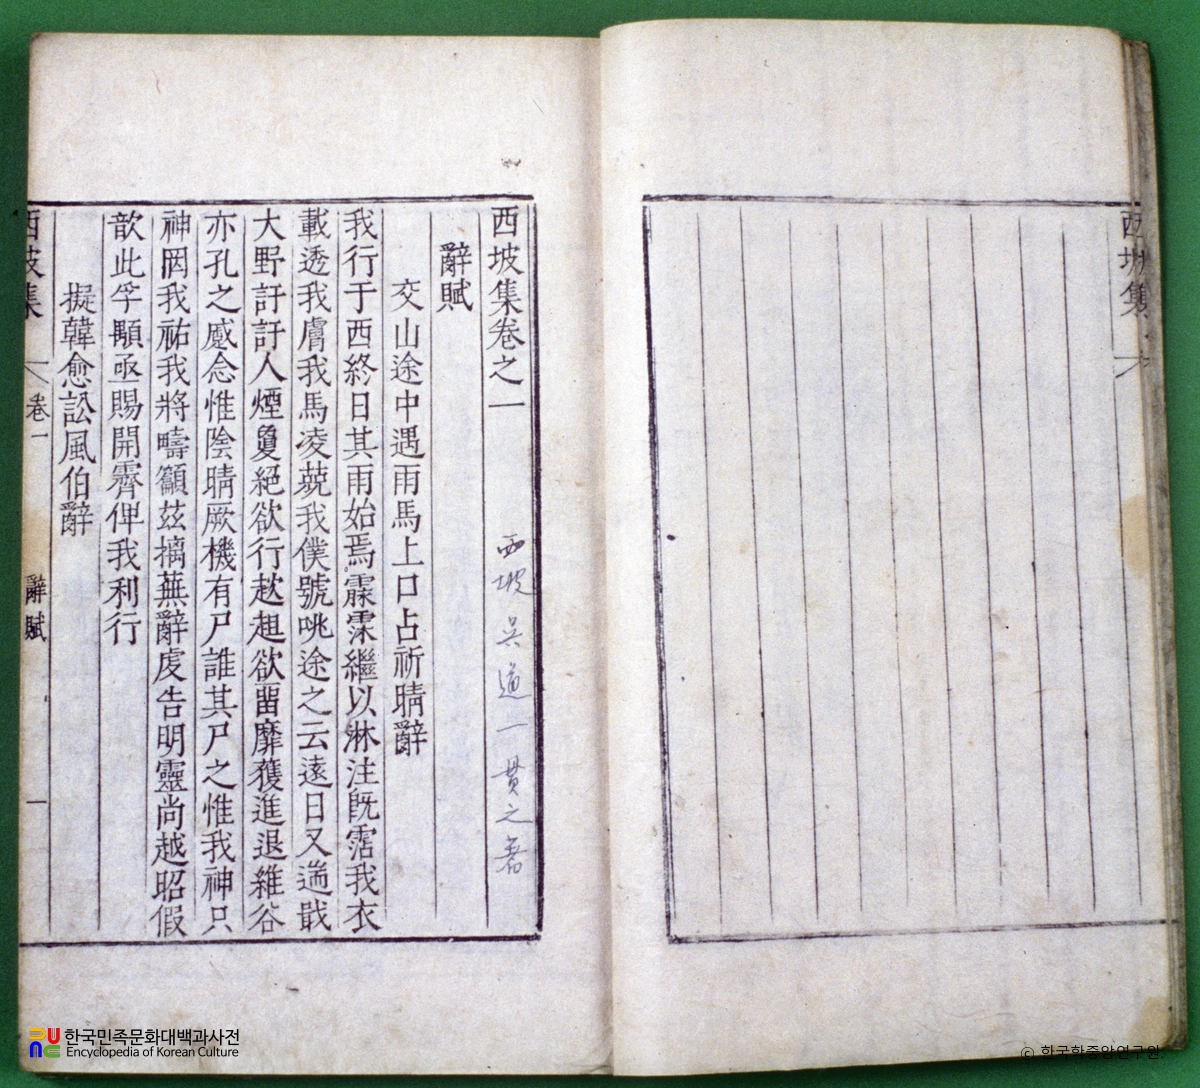 西坡集卷之一
西坡吳道一貫之著
辭賦
交山途中遇雨馬上口占祈晴辭
我行于西終日其雨始焉霡霂繼以淋注旣霑我衣
載透我膚我馬凌兢我僕號咷途之云遠日又遄戢
大野訏訏人煙敻絕欲行趑趄欲留靡獲進退維谷
亦孔之慼念惟陰晴厥機有尸誰其尸之惟我神只
神罔我祐我將疇籲玆摛蕪辭虔告明靈尙越昭假
歆此孚顒亟賜開霽俾我利行
擬韓愈訟風伯辭
西坡集 卷一 辭賦 一
西坡集
한국민족문화대백과사전
Encyclopedia of Korean Culture
© 한국학중앙연구원